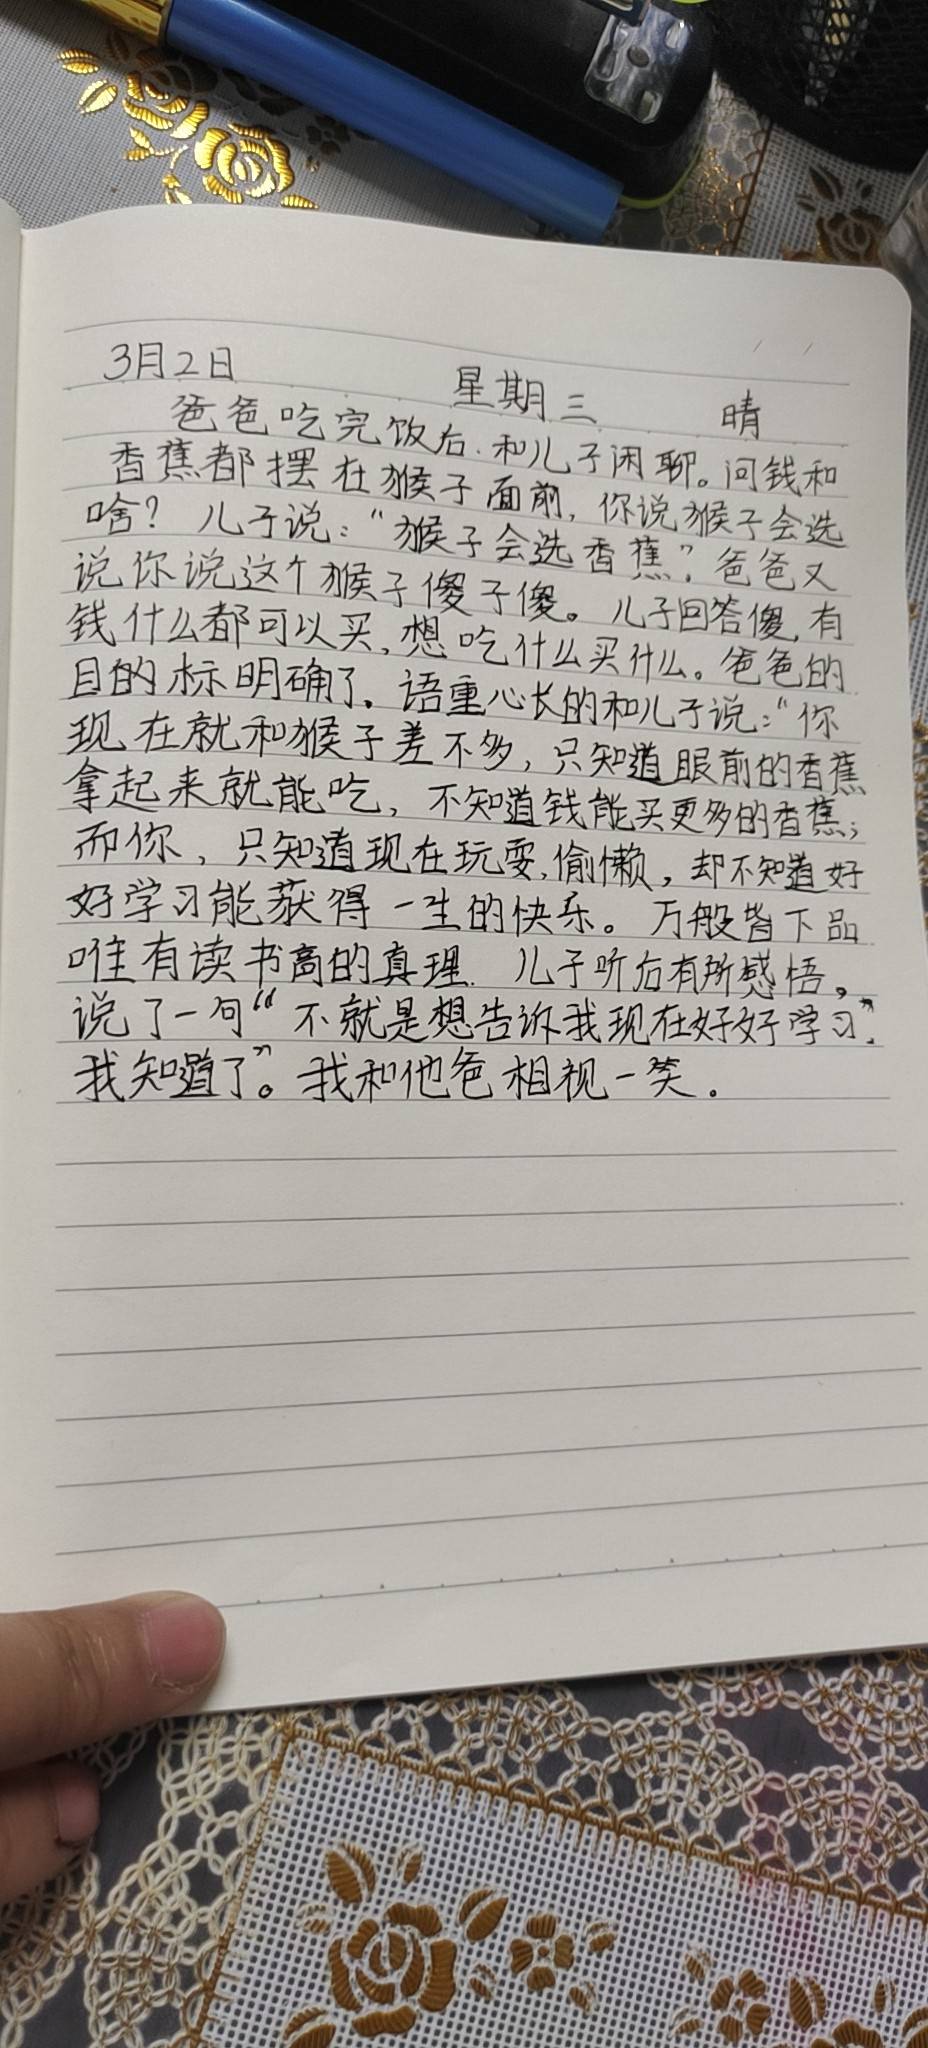 3月2日 星期三 晴
爸爸吃完饭后.和儿子闲聊。问钱和
香蕉都摆在猴子面前,你说猴子会选
啥?儿子说:“猴子会选香蕉”,爸爸又
说你说这个猴子傻子傻。儿子回答傻,有
钱什么都可以买,想吃什么买什么。爸爸的
目的标明确了.语重心长的和儿子说:“你
现在就和猴子差不多,只知道眼前的香蕉
拿起来就能吃,不知道钱能买更多的香蕉;
而你,只知道现在玩耍,偷懒,却不知道好
好学习能获得一生的快乐。万般皆下品
唯有读书高的真理.儿子听后有所感悟,
说了一句“不就是想告诉我现在好好学习”.
我知道了”。我和他爸相视一笑.